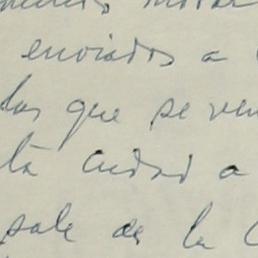 enviados a
las que se ven
ta ciudad a
sale de la